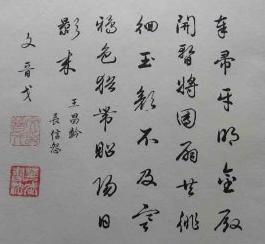 奉帚平明金殿
開暫將團扇共徘
徊玉顏不及寒
鴉色猶帶昭陽日
影來
王昌齡
長信怨
文音戈